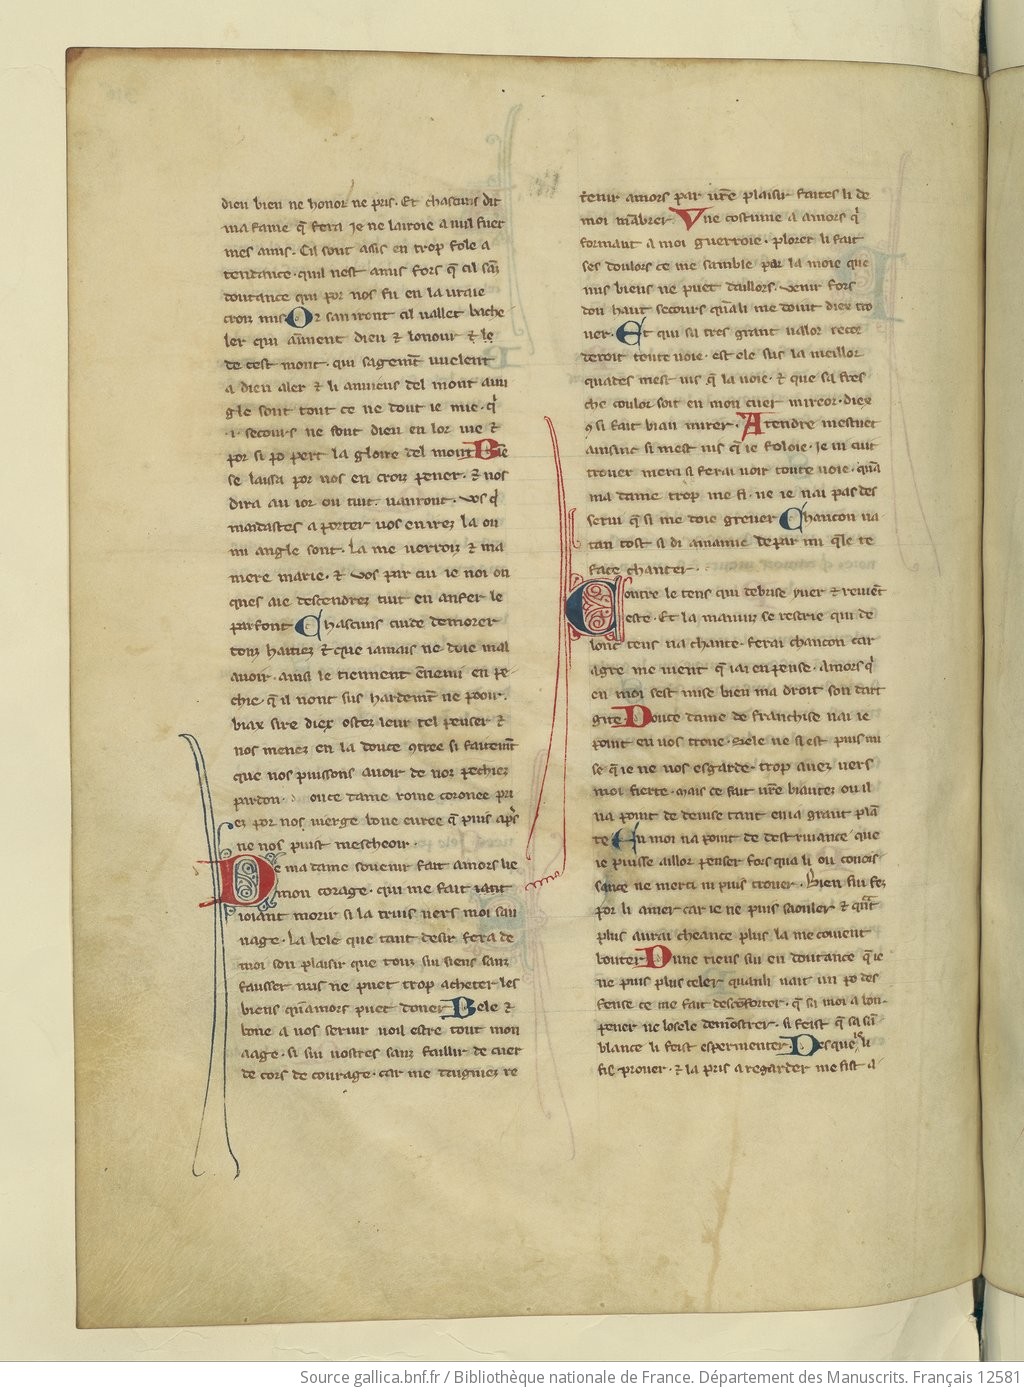 dieu bien ne honor ne pris. Et chascuns dit
ma fame q̄ fera je ne lairoie a nul fuer
mes amis. Cil sont asis en trop fole a
tendance. quil nest amis fors q̄ cil sāz
doutance qui por nos fu en la uraie
croiz mis Or san iront cil uallet bache
ler qui aīment dieu ⁊ lonour ⁊ le
de cest mont. qui sagemt̄ uuelent
a dieu aler ⁊ li
gle sont tout ce ne dout ie mie. qi
.i. secours ne font dieu en lor uie ⁊
por si po pert la gloire del mont Diē
se laissa por nos en croiz pener. ⁊ nos
dira au ior ou tuit uanront. vos q
maidastes a porter uos en irez la ou
mi angle sont. la me uerroiz ⁊ ma
mere marie. ⁊ vos par cui ie noi on
ques aie descendrez tuit en anfer le
parfont Chascuns cuide demorer
toz haitiez ⁊ que iamais ne doie mal
auoir. ainsi le tiennent ēnemi en pe
chie. q̄ il nont sus hardemt̄ ne pooir.
biax sire diex ostez leur tel penser ⁊
nos menez en la douce 9tree si faitemt̄
que nos puissons auoir de noz pechiez
pardon. ouce dame roine coronee pri
ez por nos uierge bone euree q̄ puis aps̄
ne nos puist mescheoir.
De ma dame souenir fait amors lie
mon corage. qui me fait iant
ioiant morir si la truis uers moi sau
uage. La bele que tant desir fera de
moi son plaisir que touz sui siens sanz
fausser nus ne puet trop acheter les
biens quāmors puet doner Bele ⁊
bone a uos seruir uoil estre tout mon
aage. si sui uostres sanz faillir de cuer
de cors de courage. car me daigniez re
tenir amors par ur̄e plaisir faites li de
moi mābrer Vne costume a amors qi
formant a moi guerroie. plorer li fait
ses doulors ce me samble par la moie que
nus biens ne puet daillors. venir fors
dou haut secours quā li me doint diex tro
uer. Et qui sa tres grant ualor recor
deroit toute uoie. est ele sus la meillor
quades mest uis q̄ la uoie. ⁊ que sa fres
che coulor soit en mon cuer mireor. diex
9 si fait biau mirer. Atendre mestuet
ainsinc si mest uis q̄ ie foloie. ie m cuit
trouer merci si ferai uoir toute uoie. quā
ma dame trop me fi. ne ie nai pas des
serui q̄ si me doie greuer Chancon ua
tan tost si di amamie depar mi q̄le te
face chanter.
Contre le tens qui debrise yuer ⁊ reuiēt
este. Et la mauuiz se rescrie qui de
lonc tens na chante. ferai chancon car
agre me uient q̄ iai en pense. Amors qi
en moi sest mise bien ma droit son dart
gite Douce dame de franchise nai ie
point en uos troue. sele ne si est puis mi
se q̄ ie ne uos esgarde. trop auez uers
moi fierte. mais ce fait ur̄e biautez ou il
na point de deuise tant en ia grant plā
te En moi na point de destruiance que
ie puisse aillor penser fors qua li ou conois
sance ne merci ni puis trouer. Bien fui fez
por li amer car ie ne puis saouler ⁊ quāt
plus aurai cheance plus la me couient
douter Dune riens sui en doutance q̄ ie
ne puis plus celer quanli nait un po des
fense ce me fait desc̄oforter. q̄ si moi a lon
pener ne losele demōstrer. si feist q̄ sa sā
blance li feist espermenter. Des que la
fis prouer. ⁊ la pris a regarder me fist a
Source gallica.bnf.fr / Bibliothèque nationale de France. Département des Manuscrits. Français 12581